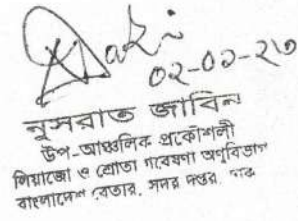 ০২-০২-২৩
নুসরাত জাবিন
উপ-আঞ্চলিক প্রকৌশলী
লিয়াজো ও শ্রোতা গবেষণা অনুবিভাগ
বাংলাদেশ বেতার, সদর দপ্তর, ঢাকা